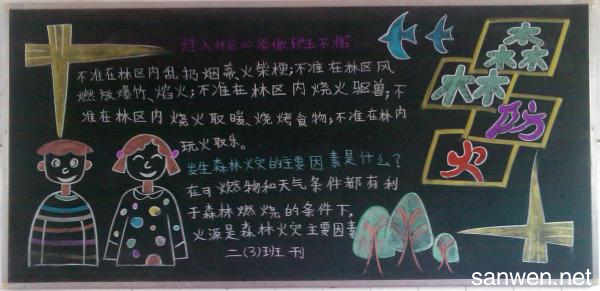 进入林区
不准在林区内乱扔烟蒂、火柴梗;不准在林区风
燃放爆竹、焰火;不准在林区内烧火驱兽;不
准在林区内烧火取暖、烧烤食物;不准在林内
玩火取乐。
发生森林火灾的主要因素是什么?
在可燃物和天气条件都有利
于森林燃烧的条件下,
火源是森林火灾主要因素
二(3)班 刊
森
林
防
火
sanwen.net